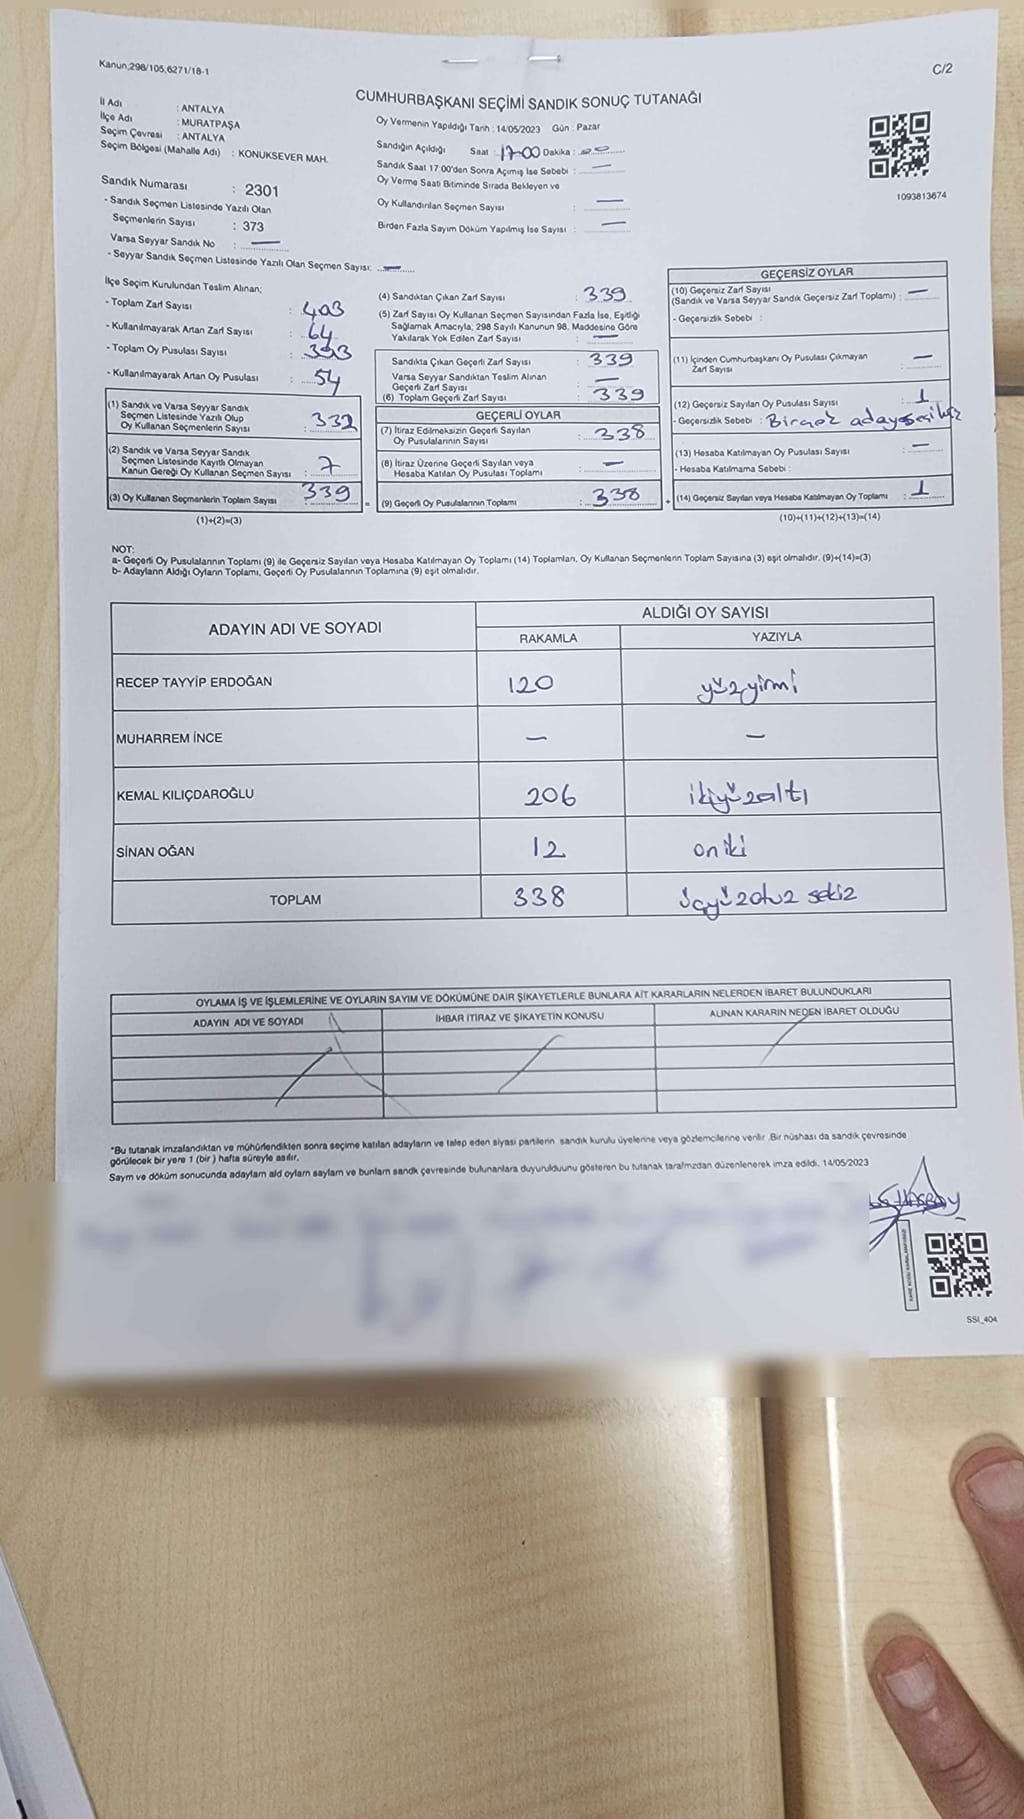 Kanun;298/105,6271/18-1
C/2
CUMHURBAŞKANI SEÇİMİ SANDIK SONUÇ TUTANAĞI
İl Adı : ANTALYA
İlçe Adı : MURATPAŞA
Seçim Çevresi : ANTALYA
Seçim Bölgesi (Mahalle Adı) : KONUKSEVER MAH.
Sandık Numarası : 2301
- Sandık Seçmen Listesinde Yazılı Olan
Seçmenlerin Sayısı : 373
Varsa Seyyar Sandık No : —
- Seyyar Sandık Seçmen Listesinde Yazılı Olan Seçmen Sayısı: —
Oy Vermenin Yapıldığı Tarih : 14/05/2023 Gün : Pazar
Sandığın Açıldığı Saat : 17:00 Dakika : 00
Sandık Saat 17:00'den Sonra Açımış İse Sebebi : —
Oy Verme Saati Bitiminde Sırada Bekleyen ve
Oy Kullandırılan Seçmen Sayısı : —
Birden Fazla Sayım Döküm Yapılmış İse Sayısı : —
1093813674
İlçe Seçim Kurulundan Teslim Alınan;
- Toplam Zarf Sayısı : 403
- Kullanılmayarak Artan Zarf Sayısı : 64
- Toplam Oy Pusulası Sayısı : 393
- Kullanılmayarak Artan Oy Pusulası : 54
(1) Sandık ve Varsa Seyyar Sandık
Seçmen Listesinde Yazılı Olup
Oy Kullanan Seçmenlerin Sayısı : 332
(2) Sandık ve Varsa Seyyar Sandık
Seçmen Listesinde Kayıtlı Olmayan
Kanun Gereği Oy Kullanan Seçmen Sayısı : 7
(3) Oy Kullanan Seçmenlerin Toplam Sayısı : 339 =
(1)+(2)=(3)
(4) Sandıktan Çıkan Zarf Sayısı : 339
(5) Zarf Sayısı Oy Kullanan Seçmen Sayısından Fazla İse, Eşitliği
Sağlamak Amacıyla; 298 Sayılı Kanunun 98. Maddesine Göre
Yakılarak Yok Edilen Zarf Sayısı : —
Sandıkta Çıkan Geçerli Zarf Sayısı : 339
Varsa Seyyar Sandıktan Teslim Alınan
Geçerli Zarf Sayısı : —
(6) Toplam Geçerli Zarf Sayısı : 339
GEÇERLİ OYLAR
(7) İtiraz Edilmeksizin Geçerli Sayılan
Oy Pusulalarının Sayısı : 338
(8) İtiraz Üzerine Geçerli Sayılan veya
Hesaba Katılan Oy Pusulası Toplamı : —
(9) Geçerli Oy Pusulalarının Toplamı : 338 +
GEÇERSİZ OYLAR
(10) Geçersiz Zarf Sayısı
(Sandık ve Varsa Seyyar Sandık Geçersiz Zarf Toplamı) : —
- Geçersizlik Sebebi :
(11) İçinden Cumhurbaşkanı Oy Pusulası Çıkmayan
Zarf Sayısı : —
(12) Geçersiz Sayılan Oy Pusulası Sayısı : 1
- Geçersizlik Sebebi : Birçok aday
(13) Hesaba Katılmayan Oy Pusulası Sayısı : —
- Hesaba Katılmama Sebebi :
(14) Geçersiz Sayılan veya Hesaba Katılmayan Oy Toplamı : 1
(10)+(11)+(12)+(13)=(14)
NOT:
a- Geçerli Oy Pusulalarının Toplamı (9) ile Geçersiz Sayılan veya Hesaba Katılmayan Oy Toplamı (14) Toplamları, Oy Kullanan Seçmenlerin Toplam Sayısına (3) eşit olmalıdır. (9)+(14)=(3)
b- Adayların Aldığı Oyların Toplamı, Geçerli Oy Pusulalarının Toplamına (9) eşit olmalıdır.
ADAYIN ADI VE SOYADI ALDIĞI OY SAYISI
RAKAMLA YAZIYLA
RECEP TAYYİP ERDOĞAN 120 yüzyirmi
MUHARREM İNCE — —
KEMAL KILIÇDAROĞLU 206 ikiyüzaltı
SİNAN OĞAN 12 oniki
TOPLAM 338 üçyüzotuz sekiz
OYLAMA İŞ VE İŞLEMLERİNE VE OYLARIN SAYIM VE DÖKÜMÜNE DAİR ŞİKAYETLERLE BUNLARA AİT KARARLARIN NELERDEN İBARET BULUNDUKLARI
ADAYIN ADI VE SOYADI İHBAR İTİRAZ VE ŞİKAYETİN KONUSU ALINAN KARARIN NEDEN İBARET OLDUĞU
*Bu tutanak imzalandıktan ve mühürlendikten sonra seçime katılan adayların ve talep eden siyasi partilerin sandık kurulu üyelerine veya gözlemcilerine verilir .Bir nüshası da sandık çevresinde
görülecek bir yere 1 (bir ) hafta süreyle asılır.
Saym ve döküm sonucunda adaylarn ald oylarn saylarn ve bunlarn sandk çevresinde bulunanlara duyurulduunu gösteren bu tutanak tarafmzdan düzenlenerek imza edildi. 14/05/2023
SSI_404